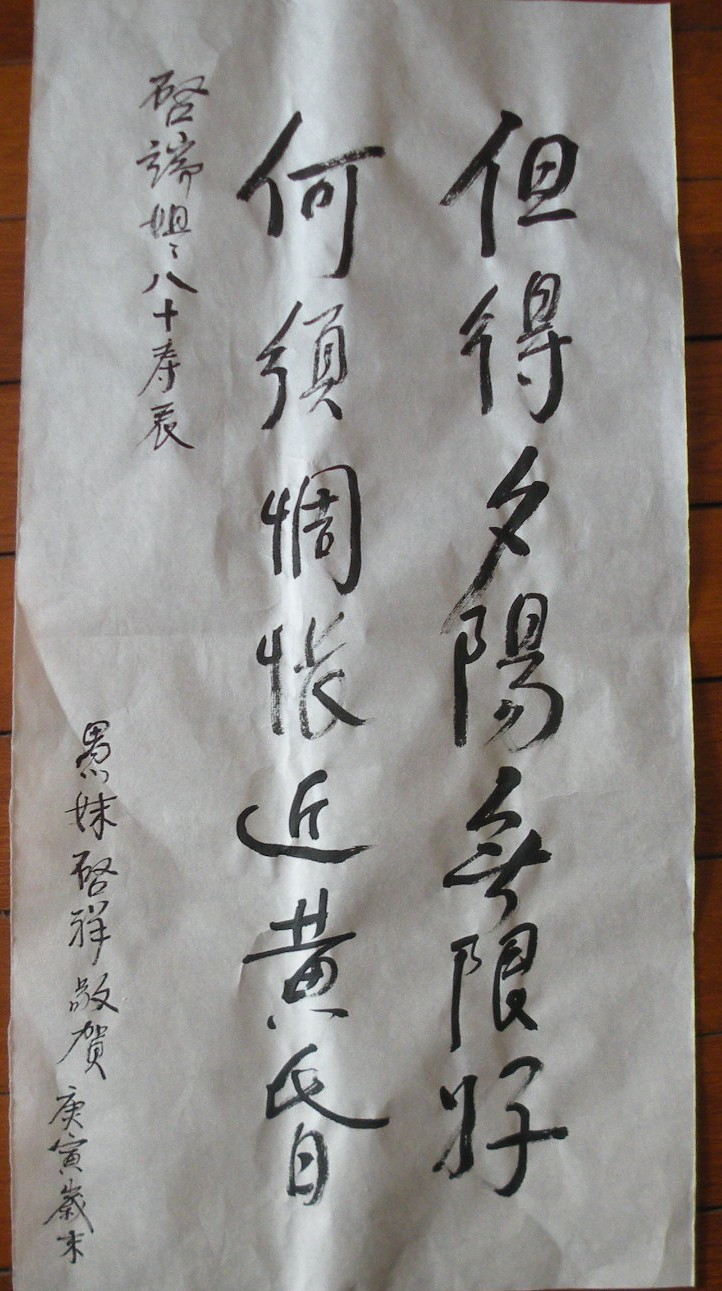 但得夕陽無限好
何須惆悵近黄昏
啓端姐〻八十寿辰
愚妹啓祥敬賀 庚寅歲末